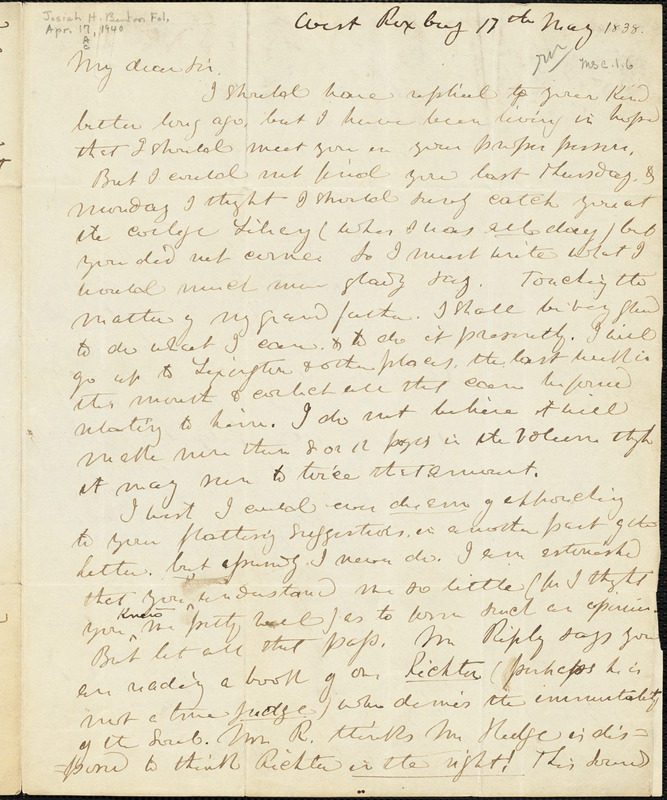 Josiah H. Benton Fd.
Apr. 17, 1940
West Roxbury 17th May 1838.
Ms C.1.6
My dear Sir.
I should have replied to your kind
letter long ago, but I have been living in hopes
that I should meet you in your proper person.
But I could not find you last Thursday. &
monday I thght I should surely catch you at
the college Library (where I was all day) but
you did not come. So I must write what I
would much more gladly say. Touching the
matter of my grand father. I shall be very glad
to do what I can. & to do it presently. I will
go up to Lexington & other places, the last week in
this month & collect all that can be found
relating to him. I do not believe it will
make more than 8 or 12 pages in the Volume thgh
it may run to twice that amount.
I wish I could ever dream of approaching
to your flattering suggestions, in another part of the
letter. but assuredly I never do. I am astonished
that you understand me so little (for I thght
you knew me pretty well) as to form such an opinion.
But let all that pass. Mr Ripley says you
are reading a book of one Richter (perhaps he is
not a true judge) who denies the immortality
of the Soul. Mr R. thinks Mr Hedge is dis=
=posed to think Richter in the right! This sound